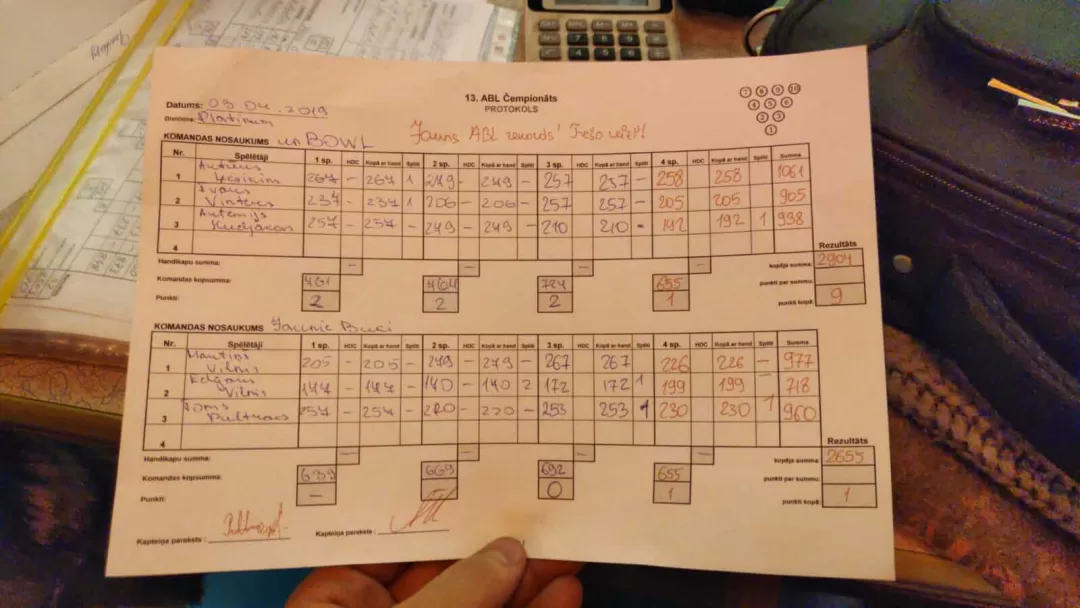 13. ABL Čempionāts
PROTOKOLS
7 8 9 10
4 5 6
2 3
1
Datums: 09.04.2019
Divīzions: Platinum
Jauns ABL rekords! Trešo reizi!
KOMANDAS NOSAUKUMS un BOWL
Nr. Spēlētāji 1 sp. HDC Kopā ar hand Spliti 2 sp. HDC Kopā ar hand Spliti 3 sp. HDC Kopā ar hand Spliti 4 sp. HDC Kopā ar hand Spliti Summa
1 267 - 267 1 249 - 249 - 257 257 - 258 258 1061
2 Ivars Vinters 237 - 237 1 206 - 206 - 257 257 - 205 205 905
3 Artemijs Hudjakovs 257 - 257 - 249 - 249 - 210 210 - 192 192 1 938
4
Handikapu summa: - - - -
Rezultāts
kopēja summa: 2904
Komandas kopsumma: 724 655
punkti par summu:
Punkti: 2 2 2 1
punkti kopā 9
KOMANDAS NOSAUKUMS Jaunie Buki
Nr. Spēlētāji 1 sp. HDC Kopā ar hand Spliti 2 sp. HDC Kopā ar hand Spliti 3 sp. HDC Kopā ar hand Spliti 4 sp. HDC Kopā ar hand Spliti Summa
1 Mārtiņš Vilnis 205 - 205 - 279 - 279 - 267 267 226 226 - 977
2 Edgars Vilnis 147 - 147 - 140 - 140 2 172 172 1 199 199 - 718
3 Toms Pultraks 257 - 257 - 220 - 220 - 253 253 1 230 230 1 960
4
Handikapu summa: - - - -
Rezultāts
kopēja summa: 2655
Komandas kopsumma: 639 692 655
punkti par summu:
Punkti: - 0 1
punkti kopā 1
Kapteiņa paraksts : Kapteiņa paraksts :